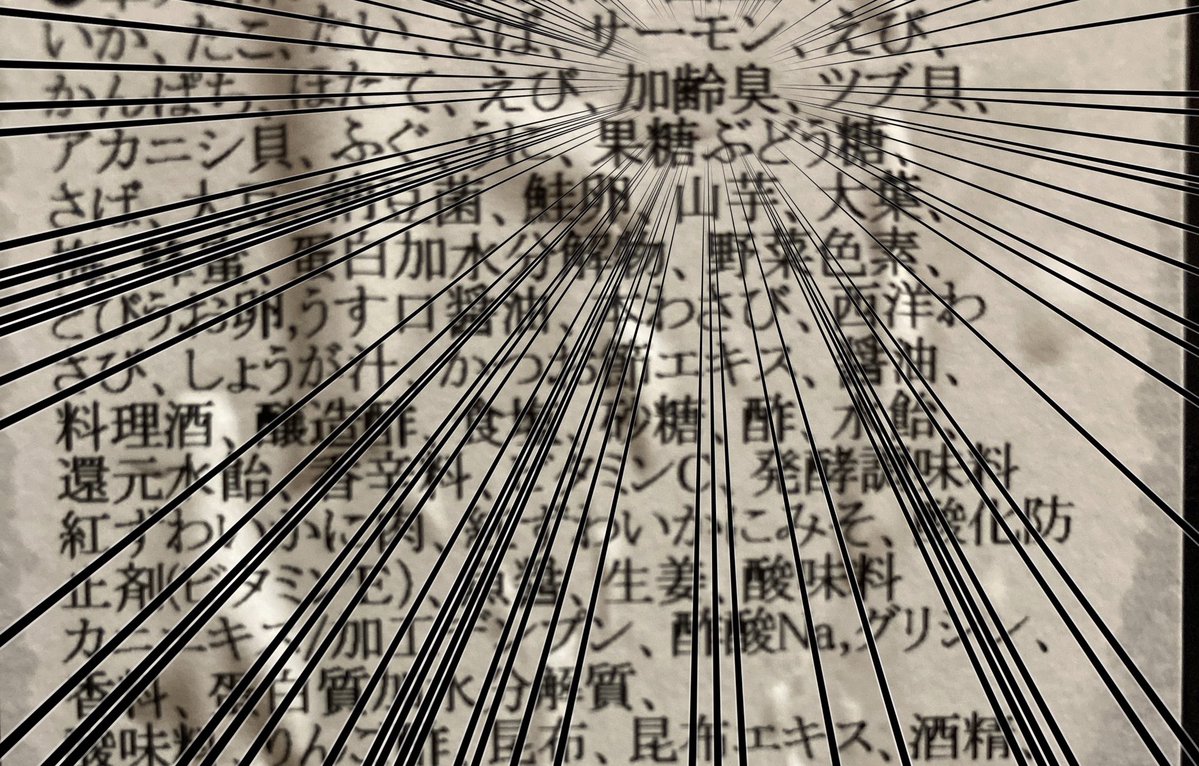 いか、たこ、たい、さば、サーモン、えび、
かんぱち、ほたて、えび、加齢臭、ツブ貝、
アカニシ貝、ふぐ、うに、果糖ぶどう糖、
さば、大豆、納豆菌、鮭卵、山芋、大葉、
梅、蜂蜜、蛋白加水分解物、野菜色素、
とびうお卵,うす口醤油、本わさび、西洋わ
さび、しょうが汁、かつお節エキス、醤油、
料理酒、醸造酢、食塩、砂糖、酢、水飴、
還元水飴、香辛料、ビタミンC、発酵調味料
紅ずわいかに肉、紅ずわいかにみそ、酸化防
止剤(ビタミンE)、魚醤、生姜、酸味料
カニエキス/加工デンプン、酢酸Na,グリシン、
香料、蛋白質加水分解質、
酸味料、りんご酢、昆布、昆布エキス、酒精、